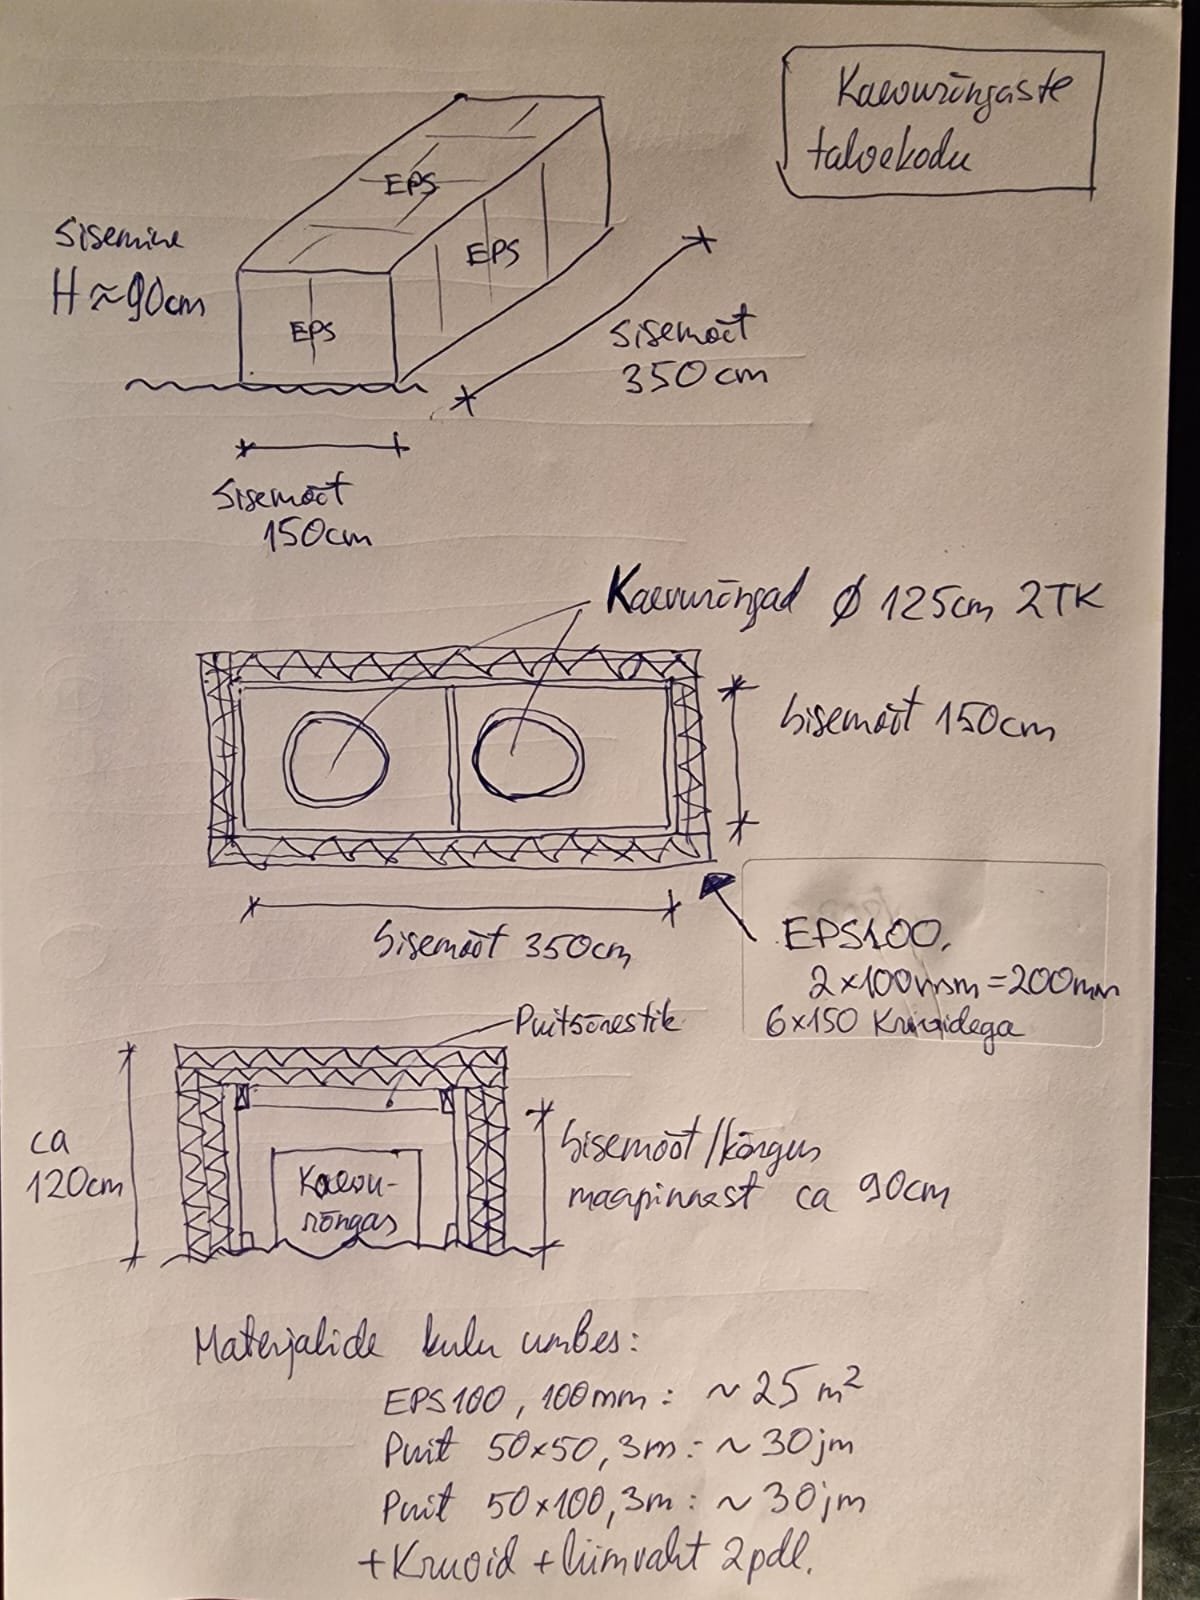 Kaevurõngaste
talvekodu
EPS
Sisemine
H ≈ 90cm
EPS
EPS
Sisemõõt
350cm
Sisemõõt
150cm
Kaevurõngad Ø 125cm 2TK
Sisemõõt 150cm
Sisemõõt 350cm
EPS100,
2x100mm=200mm
6x150 Kruvidega
Puitsõrestik
ca
120cm
Kaevu-
rõngas
Sisemõõt/kõrgus
maapinnast ca 90cm
Materjalide kulu umbes:
EPS100, 100mm: ~25m²
Puit 50x50, 3m: ~30jm
Puit 50x100, 3m: ~30jm
+Kruvid +liimvaht 2pdl.